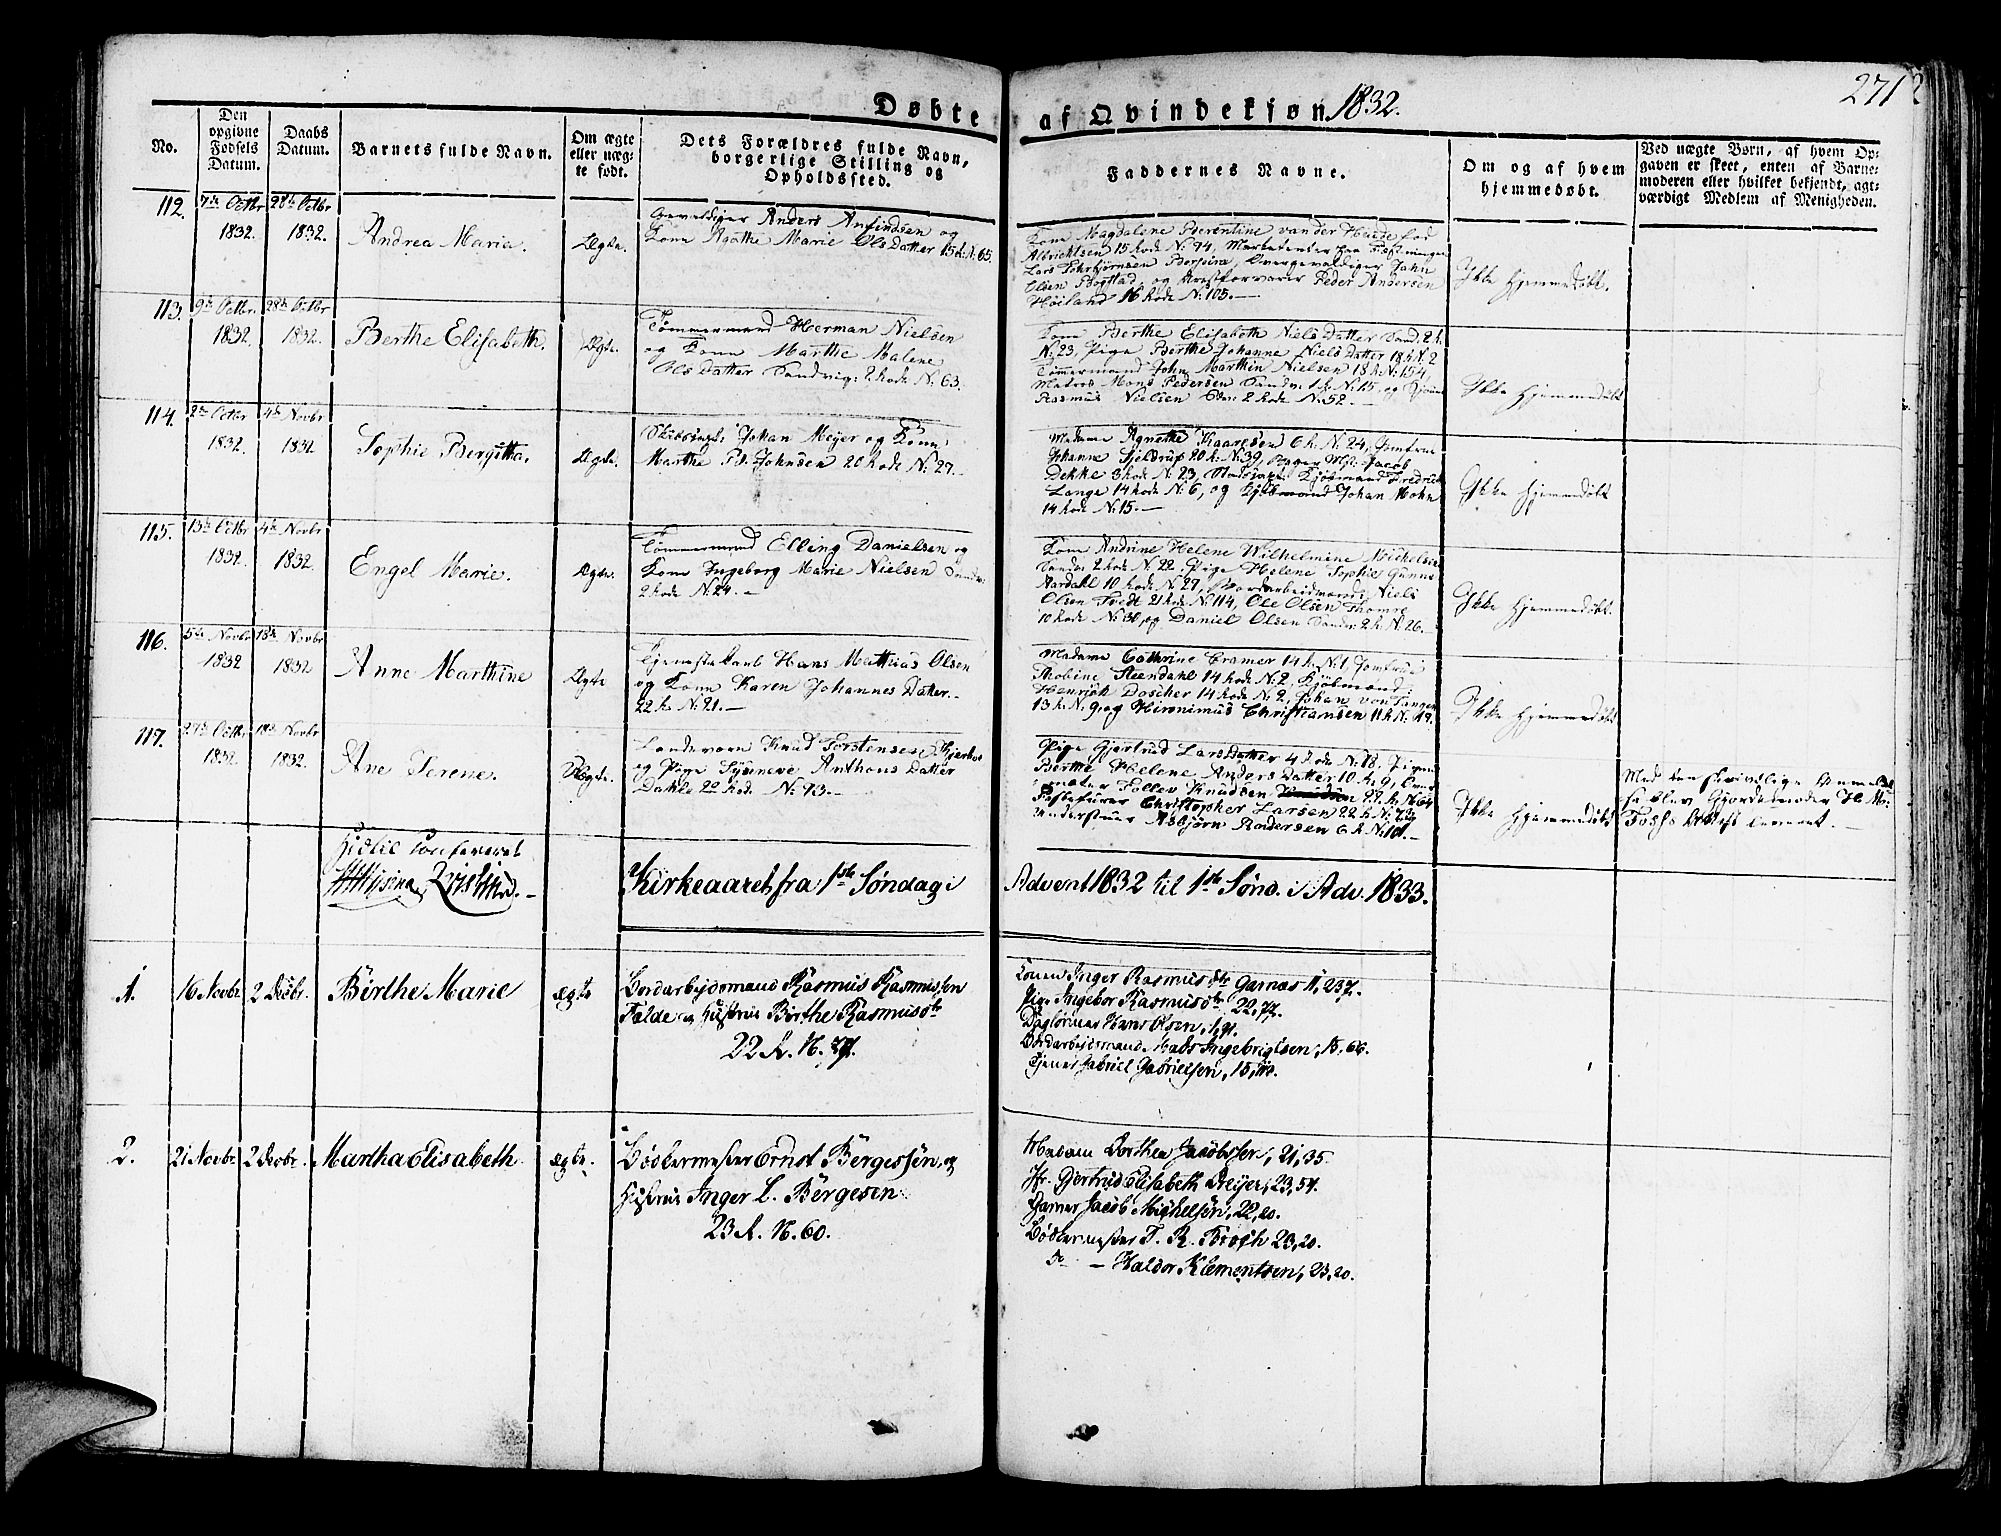 2712
Døbte af Qvindekjøn 1832.
No.
Den opgivne Fødsels Datum.
Daabs Datum.
Barnets fulde Navn.
Om ægte eller uæg-
te født.
Dets Forældres fulde Navn,
borgerlige Stilling og
Opholdssted.
Faddernes Navne.
Om og af hvem
hjemmedøbt.
Ved uægte Børn, af hvem Op-
gaven er skeet, enten af Barne-
moderen eller hvilket bekjendt, agt-
værdigt Medlem af Menigheden.
112. 7de Octbr 1832. 28de Octbr 1832.
Andrea Marie. Ægte.
Gevaldiger Anders Anfindsen og
Kone Agathe Marie Olsdatter 15de N. 65.
Kone Magdalene Berentine van der Hude
Albrichtsen 15 Rode N. 94, Marketender
Lars Torbjørnsen Overgevaldiger John
Olsen Bogstad og Arrestforvarer Peder Andersen
Høiland 16 Rode N. 105.—
Ikke Hjemmedøbt.
113. 9de Octbr. 1832. 28de Octbr 1832.
Berthe Elisabeth. Ægte.
Tømmermand Herman Nielsen
og Kone Marthe Malene
Ols Datter Sandvig: 2 Rode N. 63.
Kone Berthe Elisabeth Niels Datter Sand. 2 R.
N. 23, Pige Berthe Johanne Niels Datter 18 R N. 2
Tømmermand John Marthin Nielsen 18 R N. 154,
Matros Mons Pedersen Sandv. 1 R. N. 15, og
Rasmus Nielsen 2 Rode N. 52.—
Ikke Hjemmedøbt
114. 2de Octbr 1832. 4de Novbr 1832.
Sophie Bergitta. Ægte.
Johan Meyer og Kone
Marthe B. Johnsen 20 Rode N. 27.—
Madame Agnethe Kaaresen 6 R. N. 24, Jomfrue
Johanne Hjeldrup 20 R. N. 39, Bager Mst. Jacob
Dekke 3 Rode N. 23, Kjøbmand Fredrik
Lange 14 Rode N. 6, og Kjøbmand Johan Mohn
14 Rode N. 15.—
Ikke Hjemmedøbt
115. 13de Octbr 1832. 4de Novbr 1832.
Engel Marie. Ægte.
Tømmermand Elling Danielsen og
Kone Ingeborg Marie Nielsen Sandv.
2 Rode N. 24.—
Kone Andrine Helene Wilhelmine Michelsen
Sandv. 2 Rode N. 22, Pige Helene Sophie Gunne
Aardahl 10 Rode N. 27, Bordarbeidsmand Niels
Olsen Tvedt 21 Rode N. 114, Ole Olsen Thomre
10 Rode N. 30, og Daniel Olsen Sandv. 2 R. N. 26.—
Ikke Hjemmedøbt
116. 5de Novbr 1832 18de Novbr 1832
Anne Marthine Ægte
Tjenestekarl Hans Mathias Olsen
og Kone Karen Johannes Datter.—
22 R. N. 21.—
Madame Cathrine Cramer 14 R. N. 1, Jomfrue
Thobine Steendahl 14 Rode N. 2, Kjøbmænd:
Henrich Dascher 14 Rode N. 2, Johan von Tangen
13 R. N. 9, og Hironimus Christiansen 11 R N. 49.
Ikke Hjemmedøbt
117. 27de Octbr 1832. 18de Novbr 1832.
Ane Serene. Uægte.
Landeværn Knud Torstensen
og Pige Syneve Anthons Datter
Dahle 22 Rode N. 93.—
Pige Gjertrud Lars Datter 4 Rode N. 18, Pigen
Berthe Helene Anders Datter 10 R, 9,
Tollev Knudsen 22 R. N. 64
Christopher Larsen 22 R. N. 72,
Asbjørn Andersen 6 R. N. 10.—
Ikke Hjemmedøbt
Med skriftlige
blev Gjordemoder
leveret.—
Hidtil confereret
Kirkeaaret fra 1ste Søndag i Advent 1832 til 1ste Sønd. i Adv. 1833.
1. 16 Novbr. 2 Decbr. Birthe Marie ægte
Bordarbeidsmand Rasmus Rasmussen
Falde og Hustrue Birthe Rasmusdtr
22 R. N. 77.
Konen Inger Rasmusdtr Garnæs 11, 237.
Pige Ingebor Rasmusdtr 22, 77.
Daglønner Hans Olsen, 1, 91.
Bordarbeidsmand Mads Ingebrigtsen, 15, 66.
Tjener Gabriel Gabrielsen, 15, 110.
2. 21 Novbr. 2 Decbr. Martha Elisabeth ægte.
Bødkermester Ernst Børgessen og
Hustrue Inger L. Børgesen
23 R. N. 60.
Madam Dorthea Jacobssen, 21, 35.
Fr. Gjertrud Elisabeth Dreyer, 23, 54.
Garver Jacob Michelsen, 22, 20.
Bødkermester T. R. Brosh 23, 20.
do — Haldor Klementsen, 23, 20.